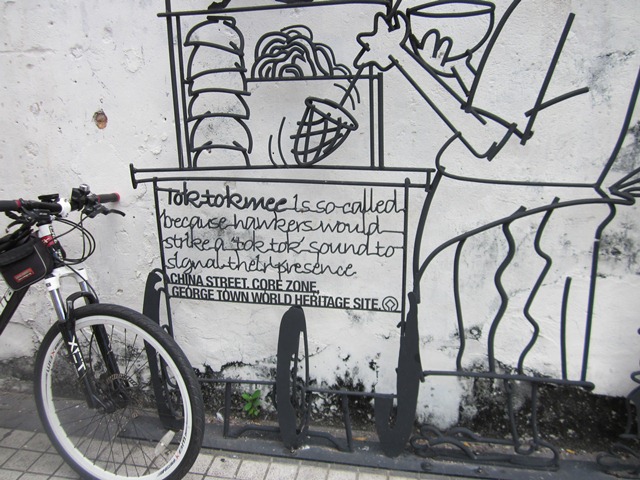 Tok tok mee is so called
because hawkers would
strike a 'tok tok' sound to
signal their presence
CHINA STREET, CORE ZONE,
GEORGE TOWN WORLD HERITAGE SITE
XCT